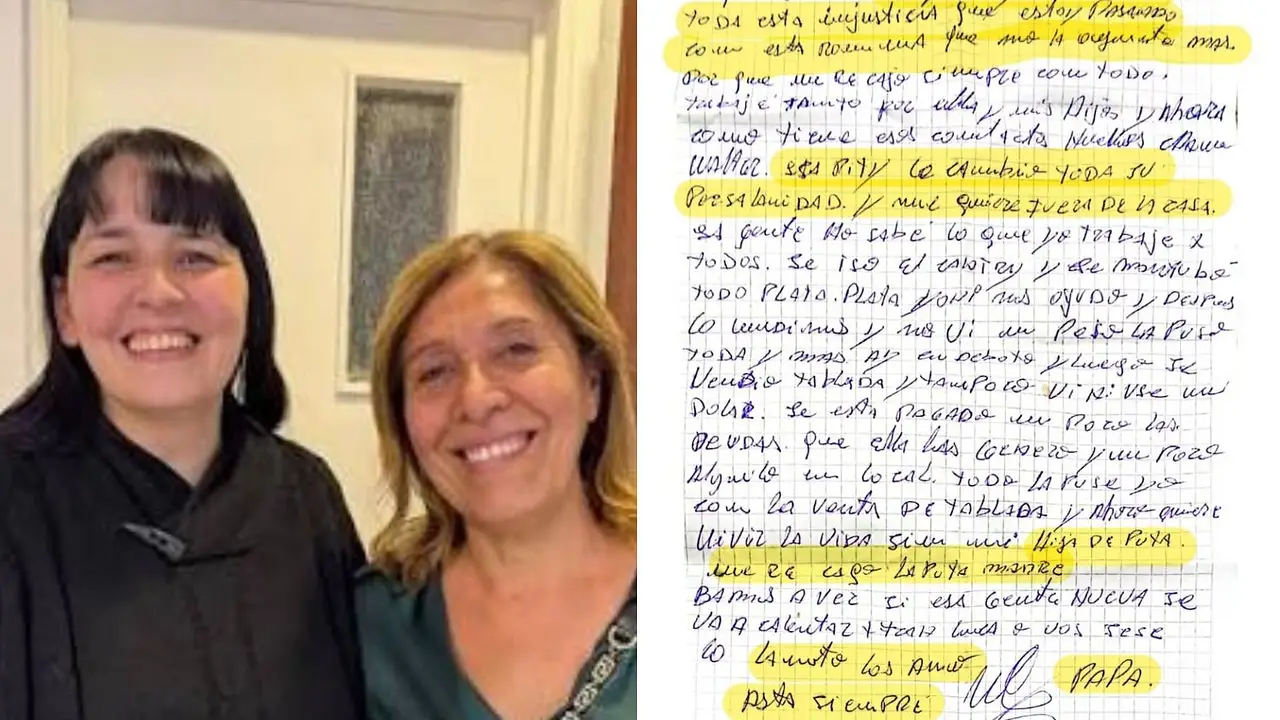 TODA esta injusticia que estoy PASANDO
com esta que no la aguanto mas.
Por que me re cago siempre com TODO.
Trabajé tanto por ella y mis Hijos y Ahora
como tiene esos contactos Nuebos
WALTER. esa PITY le cambio TODA SU
PERSALANIDAD. y me quiere FUERA DE la CASA.
la gente No sabe lo que yo trabaje x
TODOS. Se iso el y se mantubo
TODO PLATA. PLATA y nos ayudo y DESPUES
lo bendimos y no vi un Peso LA PUSE
TODA y mas AY en DEBOTO y luego se
Vendio TABLADA y TAMPOCO Vi Ni USE un
DOLAR. Se esta PAGADO un POCO las
DEUDAS que ella las GENERO y un POCO
Alquilo un LOCAL. TODO LA PUSE yo
com la venta DE TABLADA y Ahora quiere
ViViR la ViDA sim mi HIJA DE PUTA.
me RE cago LA PUTA MADRE
BAMOS A VER si esa Genta NUEVA se
VA A calentar x o vos
lo lamento los AMO
ASTA SiEMPRE PAPA.